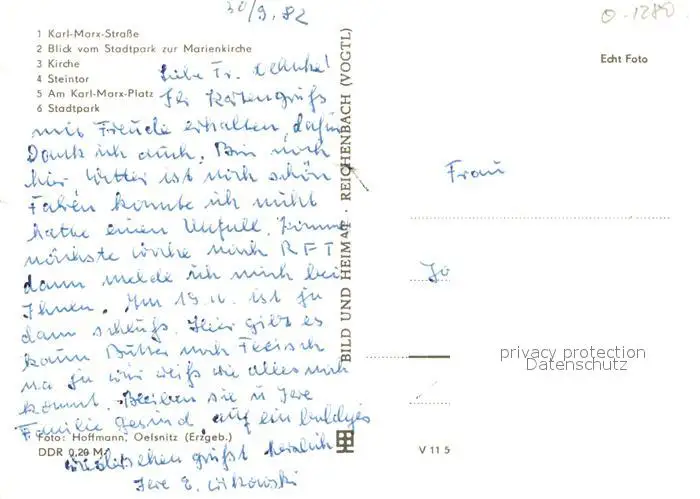 30/9.82
0-1280
1 Karl-Marx-Straße
2 Blick vom Stadtpark zur Marienkirche
3 Kirche
4 Steintor
5 Am Karl-Marx-Platz
6 Stadtpark
Echt Foto
Liebe Fr.
Ihr Kartengruß
mit Freude erhalten, dafür
Dank ich auch. Bin noch
hier Wetter ist noch schön
Fahren konnte ich nicht
hatte einen Unfall. Komme
nächste Woche nach RFT
dann melde ich mich bei
Ihnen. Im ist ja
dann schluß. Hier gibt es
kaum Butter noch Fleisch
na ja wir weiß wie alles noch
kommt. Bleiben sie u Ihre
Familie gesund, auf ein baldiges
grüßt herzlich
Ihre E. Witkowski
Foto: Hoffmann, Oelsnitz (Erzgeb.)
DDR 0,20 M
BILD UND HEIMAT · REICHENBACH (VOGTL)
V 11 5
Frau
privacy protection
Datenschutz